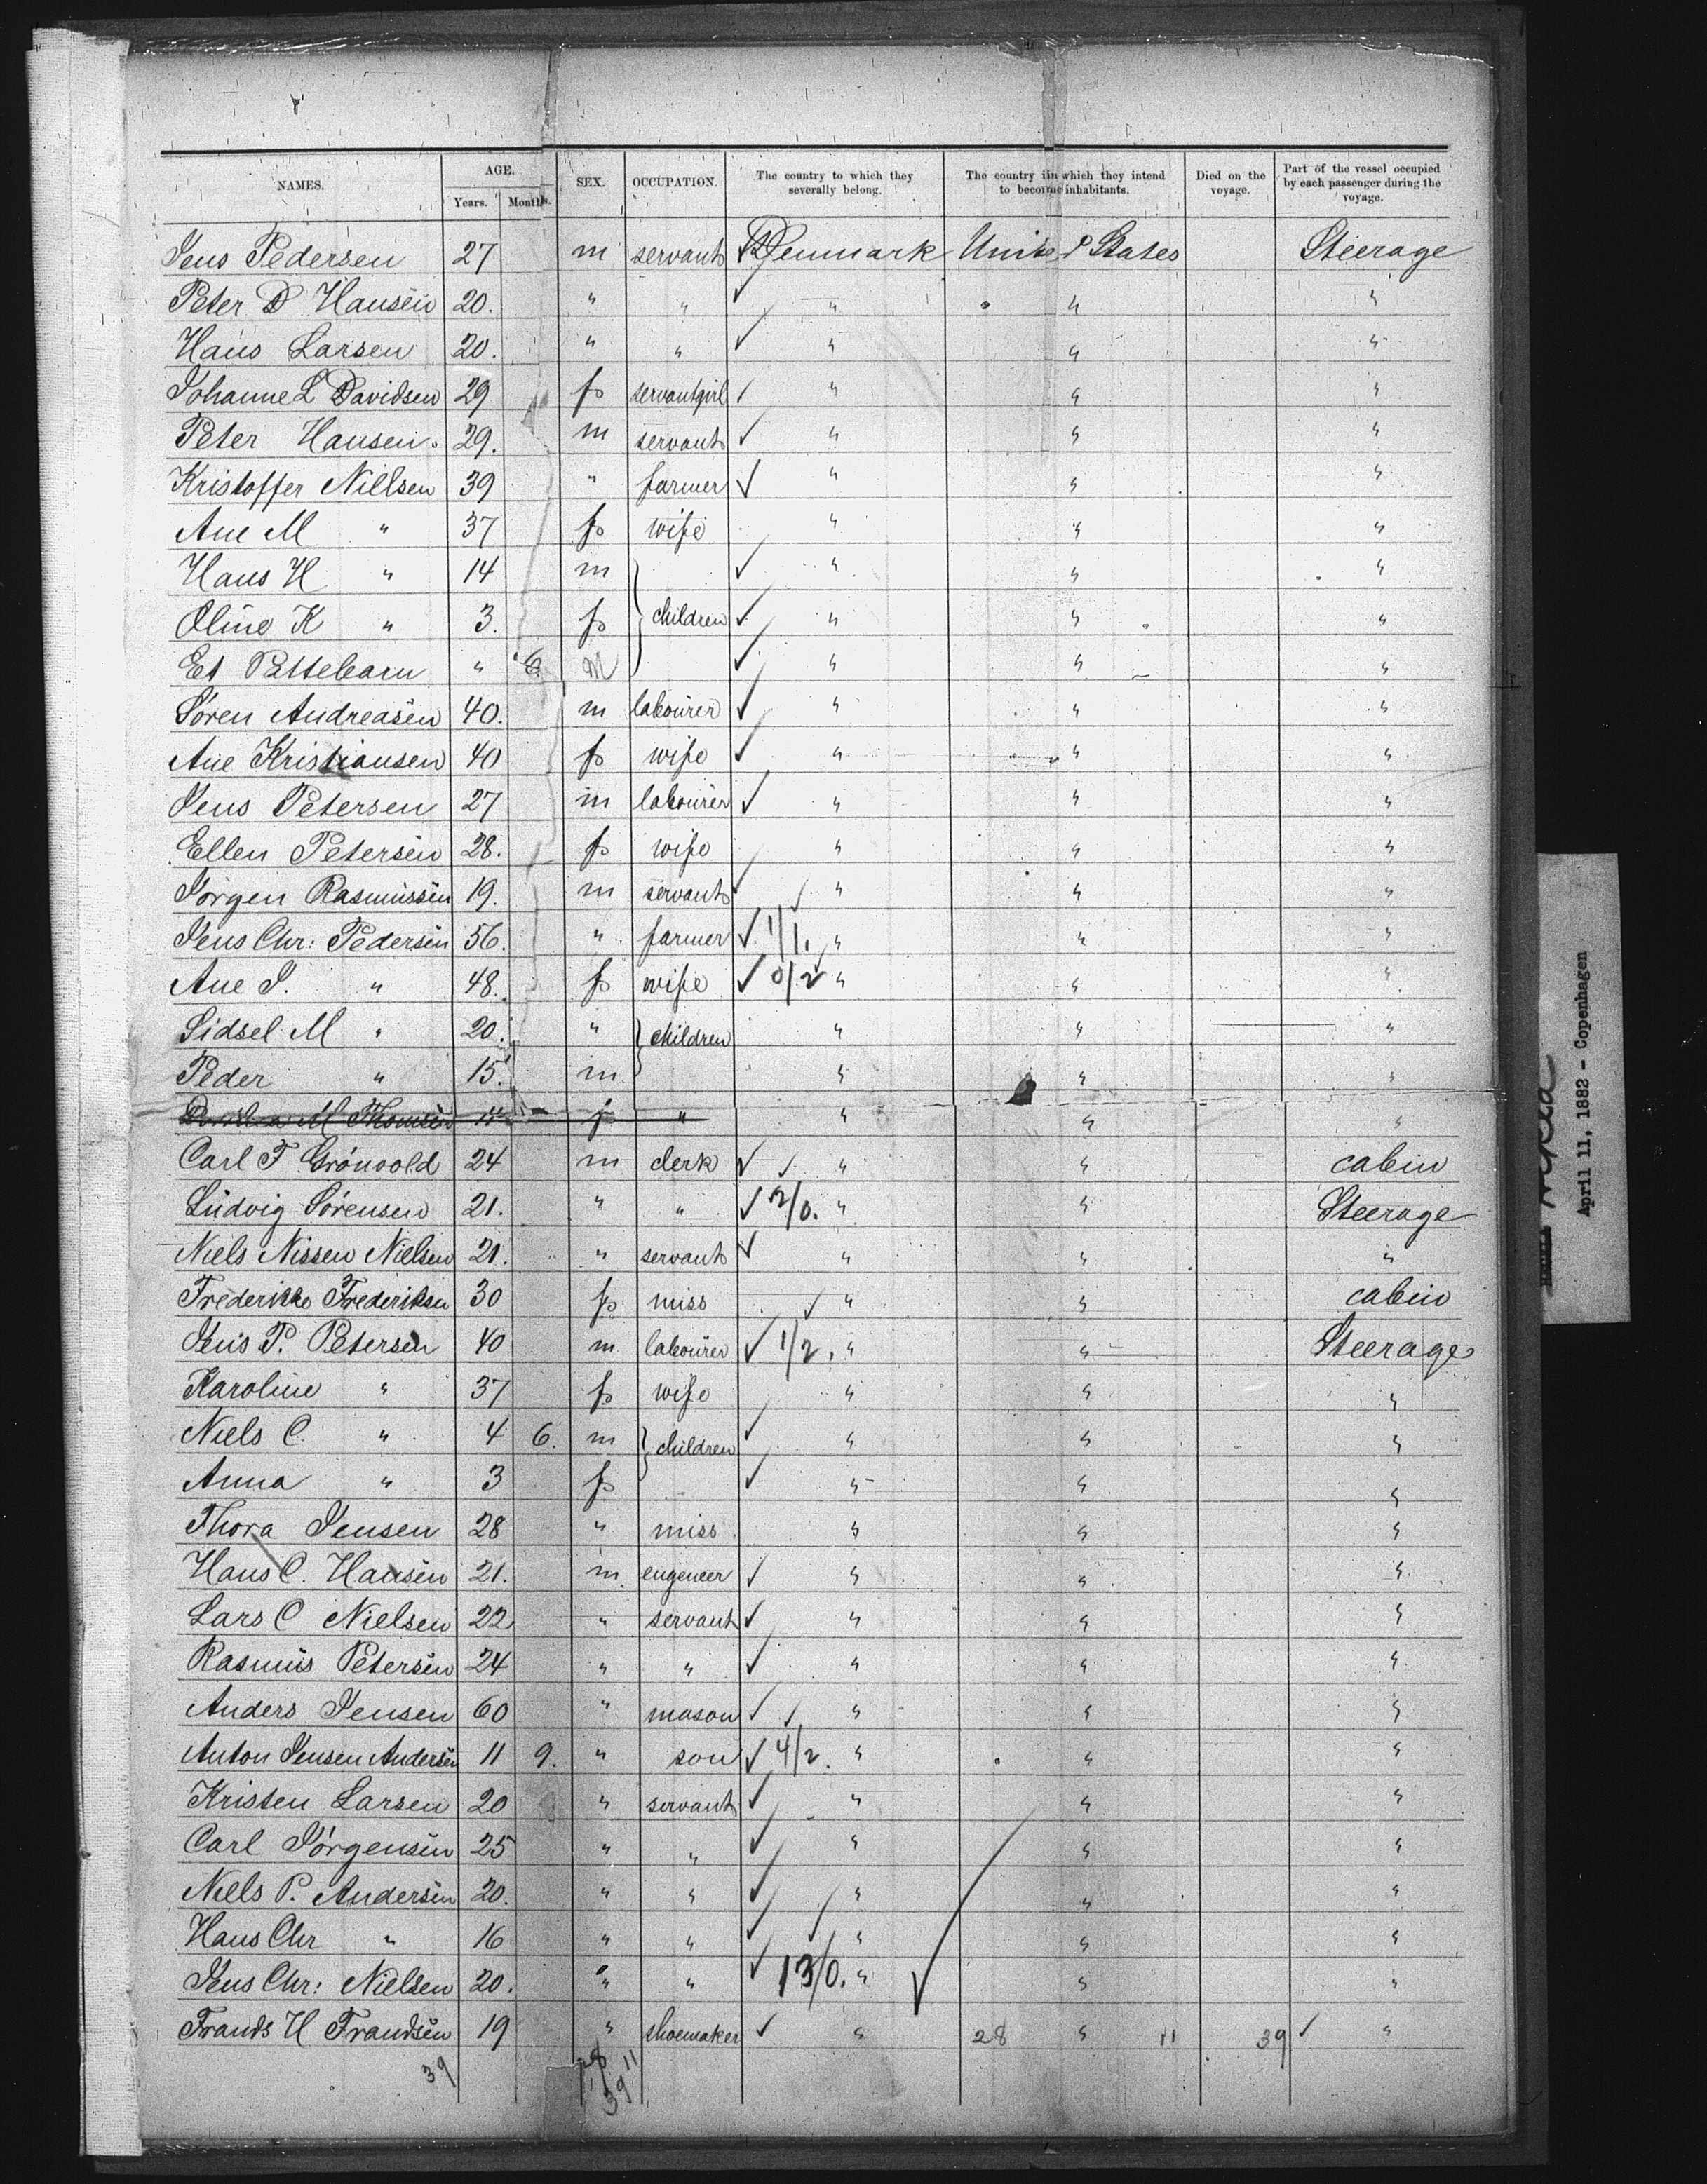 NAMES. AGE. Years. Months. SEX. OCCUPATION. The country to which they severally belong. The country in which they intend to become inhabitants. Died on the voyage. Part of the vessel occupied by each passenger during the voyage.
Jens Pedersen 27 m servant Denmark United States Steerage
Peter D Hansen 20. " " " " "
Hans Larsen 20. " " " " "
Johanne L Davidsen 29 f servantgirl " " "
Peter Hansen. 29. m servant " " "
Kristoffer Nielsen 39 " farmer " " "
Ane M " 37 f wife " " "
Hans H " 14 m " " "
Oline K " 3. f children " " "
Et Pattebarn " 6. M " " "
Sören Andreasen 40. m labourer " " "
Ane Kristiansen 40 f wife " " "
Jens Petersen 27 m labourer " " "
Ellen Petersen 28. f wife " " "
Jörgen Rasmussen 19. m servant " " "
Jens Chr: Pedersen 56. " farmer 1/1. " " "
Ane J. " 48. f wife 0/2 " " "
Sidsel M " 20. " children " " "
Peder " 15. m " " "
M Thomsen f " " " "
Carl F Grönvold 24 m clerk " " cabin
Ludvig Sörensen 21. " " 2/0. " " Steerage
Niels Nissen Nielsen 21. " servant " " "
Frederikke Frederiksen 30 f miss " " cabin
Jens P. Petersen 40 m labourer 1/2. " " Steerage
Karoline " 37 f wife " " "
Niels C. " 4 6. m children " " "
Anna " 3 f " " "
Thora Jensen 28 " miss " " "
Hans C. Hansen 21. m engeneer " " "
Lars C Nielsen 22 " servant " " "
Rasmus Petersen 24 " " " " "
Anders Jensen 60 " mason " " "
Anton Jensen Andersen 11 9. " son 4/2. " " "
Kristen Larsen 20 " servant " " "
Carl Jörgensen 25 " " " " "
Niels P. Andersen 20. " " " " "
Hans Chr " 16 " " " " "
Jens Chr: Nielsen 20. " " 13/0. " " "
Frands H Frandsen 19 " shoemaker " 28 " 11 39 "
39 28 11
39
April 11, 1882 - Copenhagen